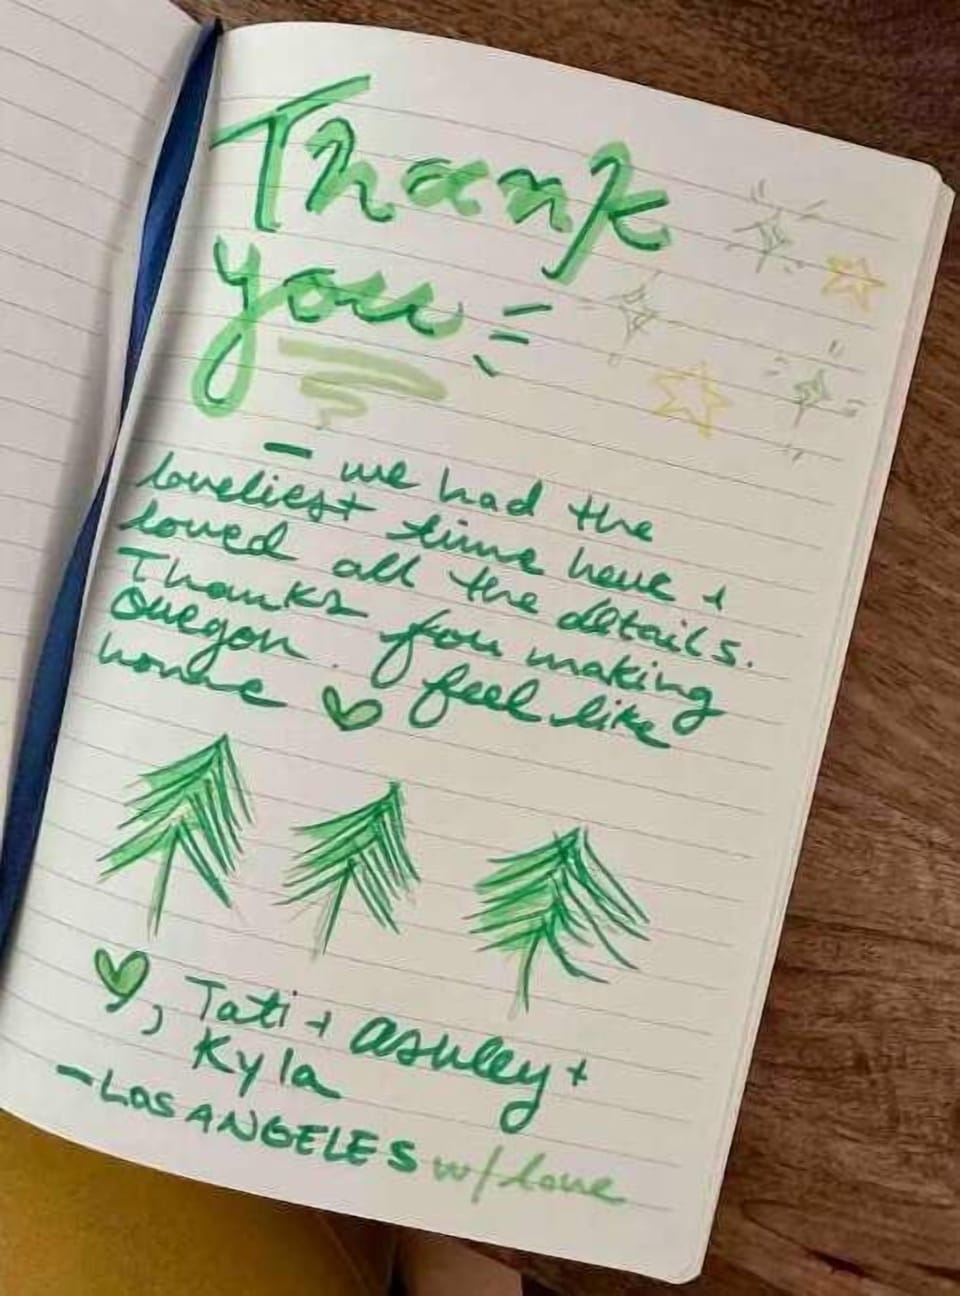 Thank
you
— we had the
loveliest time here +
loved all the details.
Thanks for making
Oregon feel like
home
, Tati + Ashley +
Kyla
- LOS ANGELES w/ love